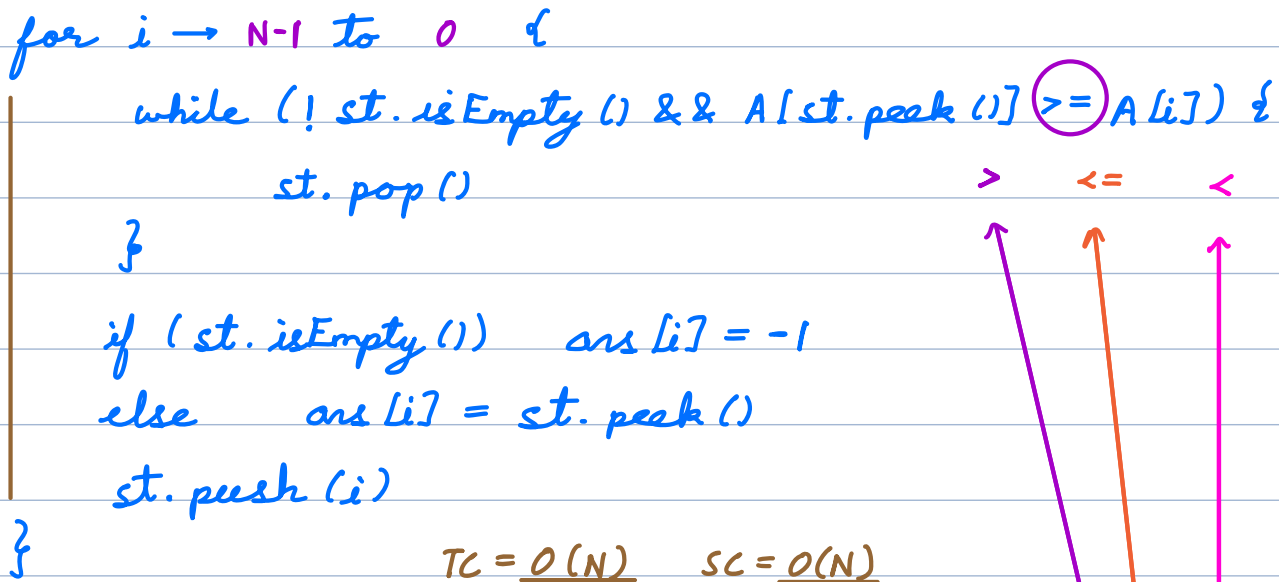 for i → N-1 to 0 {
while (! st.isEmpty () && A[st.peek ()] >= A[i]) {
st.pop () > <= <
}
if (st.isEmpty ()) ans [i] = -1
else ans [i] = st.peek ()
st.push (i)
}
TC = O(N) SC = O(N)